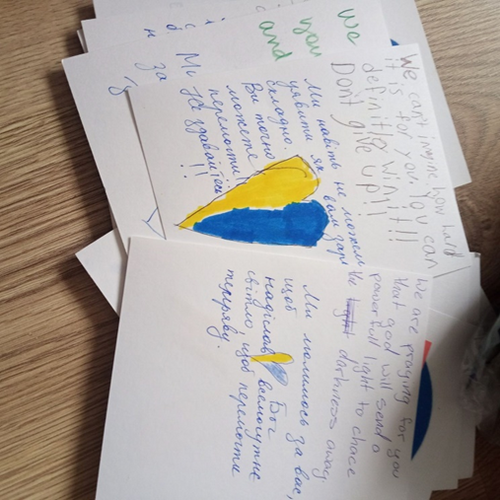 We
you
and
We can't imagine how hard
it is for you. You can
definitley win it!!
Don't give up!!
Ми навіть не можем
уявити як вам зараз
складно.
Ви точно
можете
перемогти
Не здавайтесь!!
Ми
за
We are praying for you
that god will send a
powerfull light to chace
the light darkness away
Ми молимось за вас,
щоб Бог
надіслав всемогутнє
світло, щоб перемогти
темряву.